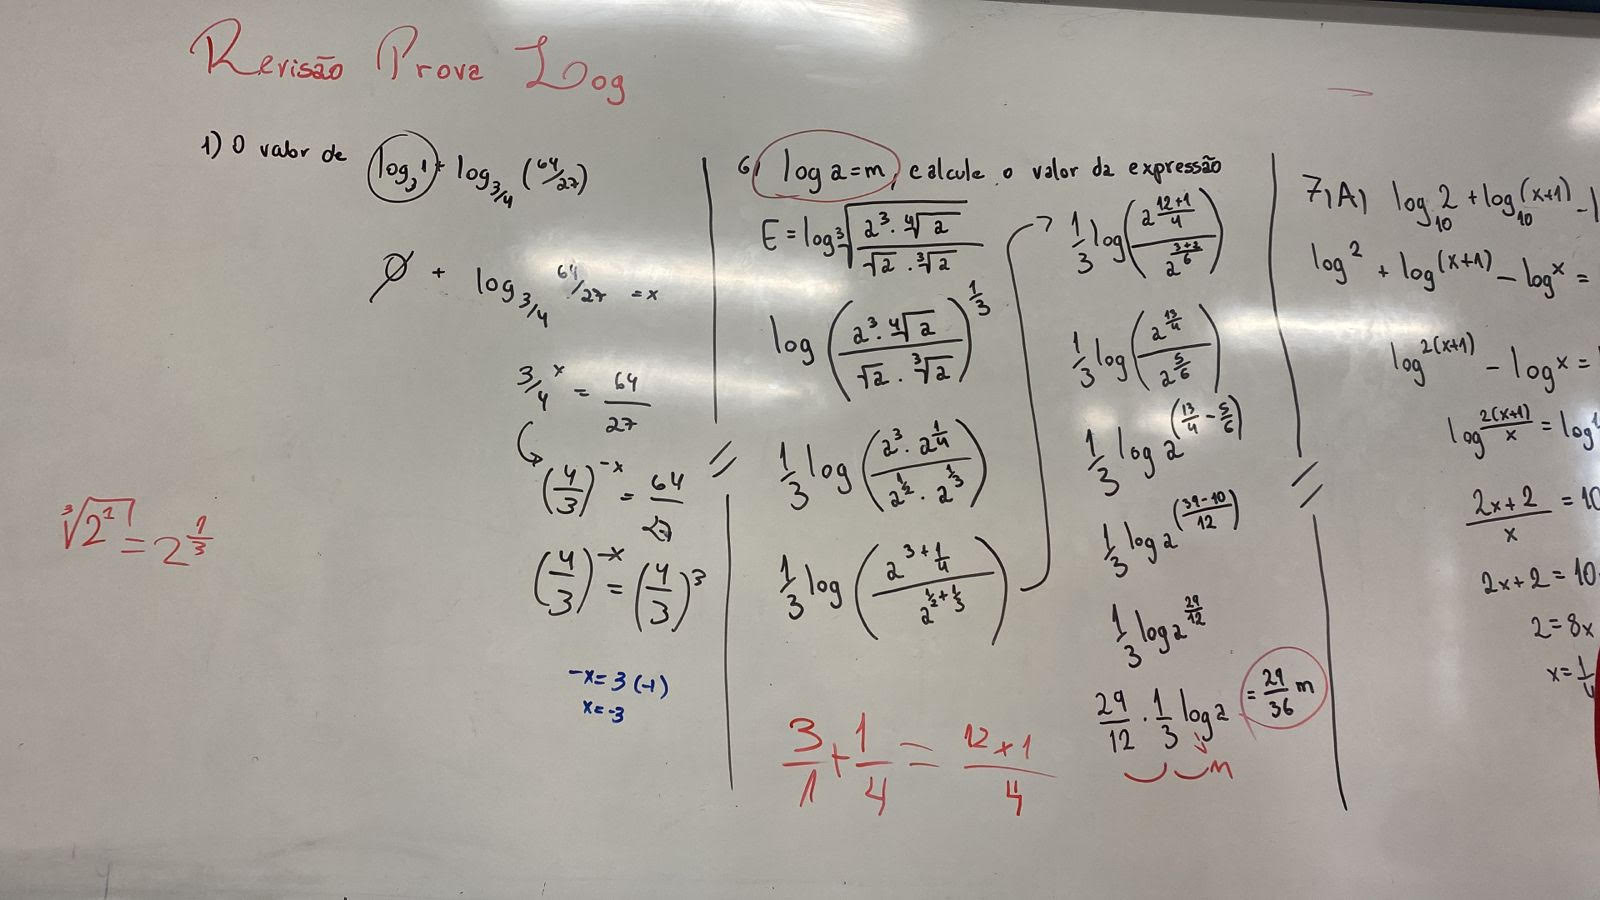 Revisão Prova Log
1) O valor de log₃1 + log_{3/4} (64/27)
∅ + log_{3/4} 64/27 = x
3/4^x = 64/27
(4/3)^{-x} = 64/27
(4/3)^{-x} = (4/3)^3
-x = 3 (-1)
x = -3
∛(2^1) = 2^{1/3}
6) log 2 = m, calcule o valor da expressão
E = log ∛((2^3 · ∜2)/(√2 · ∛2))
log ((2^3 · ∜2)/(√2 · ∛2))^{1/3}
1/3 log ((2^3 · 2^{1/4})/(2^{1/2} · 2^{1/3}))
1/3 log ((2^{3+1/4})/(2^{1/2+1/3}))
3/1 + 1/4 = (12+1)/4
1/3 log ((2^{(12+1)/4})/(2^{(3+2)/6}))
1/3 log ((2^{13/4})/(2^{5/6}))
1/3 log 2^{(13/4 - 5/6)}
1/3 log 2^{((39-10)/12)}
1/3 log 2^{29/12}
29/12 · 1/3 log 2 = 29/36 m
m
7) A) log₁₀2 + log₁₀(x+1) -
log 2 + log(x+1) - log x =
log 2(x+1) - log x =
log 2(x+1)/x = log
(2x+2)/x = 10
2x+2 = 10
2 = 8x
x = 1/4